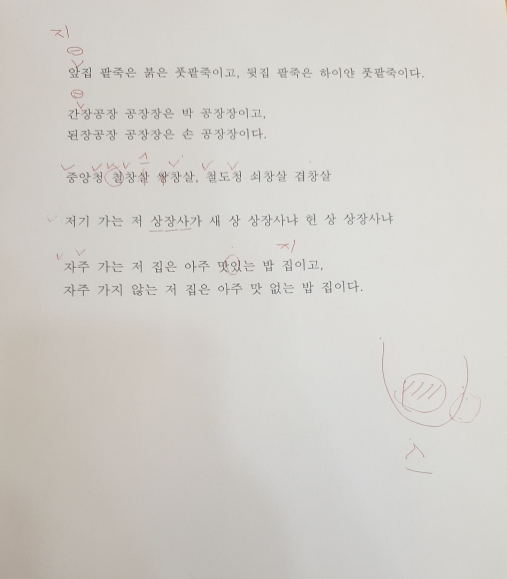 지
앞집 팥죽은 붉은 풋팥죽이고, 뒷집 팥죽은 하이얀 풋팥죽이다.
간장공장 공장장은 박 공장장이고,
된장공장 공장장은 손 공장장이다.
중앙청 철창살 쌍창살, 철도청 쇠창살 겹창살
저기 가는 저 상장사가 새 상 상장사냐 헌 상 상장사냐
지
자주 가는 저 집은 아주 맛있는 밥 집이고,
자주 가지 않는 저 집은 아주 맛 없는 밥 집이다.
스